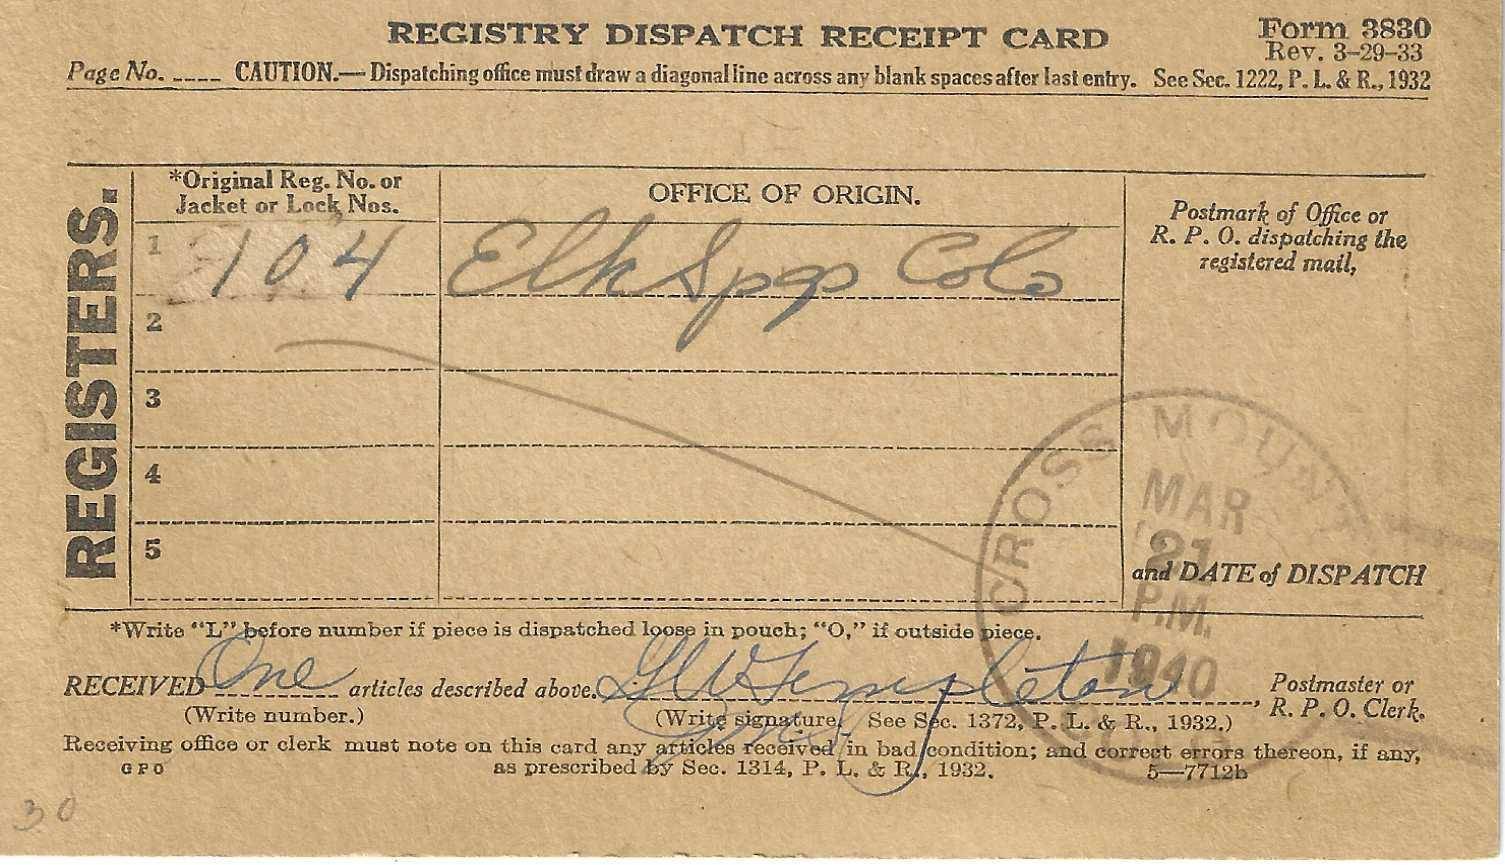 REGISTRY DISPATCH RECEIPT CARD
Form 3830
Rev. 3-29-33
Page No. ____ CAUTION.—Dispatching office must draw a diagonal line across any blank spaces after last entry. See Sec. 1222, P. L. & R., 1932
REGISTERS.
*Original Reg. No. or
Jacket or Lock Nos.
OFFICE OF ORIGIN.
Postmark of Office or
R. P. O. dispatching the
registered mail,
1 104 Elk Spgs Colo
2
3
4
5
CROSS MOUN
MAR
21
P.M.
1940
and DATE of DISPATCH
*Write "L" before number if piece is dispatched loose in pouch; "O," if outside piece.
RECEIVED One articles described above. G W Templeton, Postmaster or
R. P. O. Clerk.
(Write number.) (Write signature. See Sec. 1372, P. L. & R., 1932.)
Receiving office or clerk must note on this card any articles received in bad condition; and correct errors thereon, if any,
GPO as prescribed by Sec. 1314, P. L. & R., 1932. 5—7712b
30